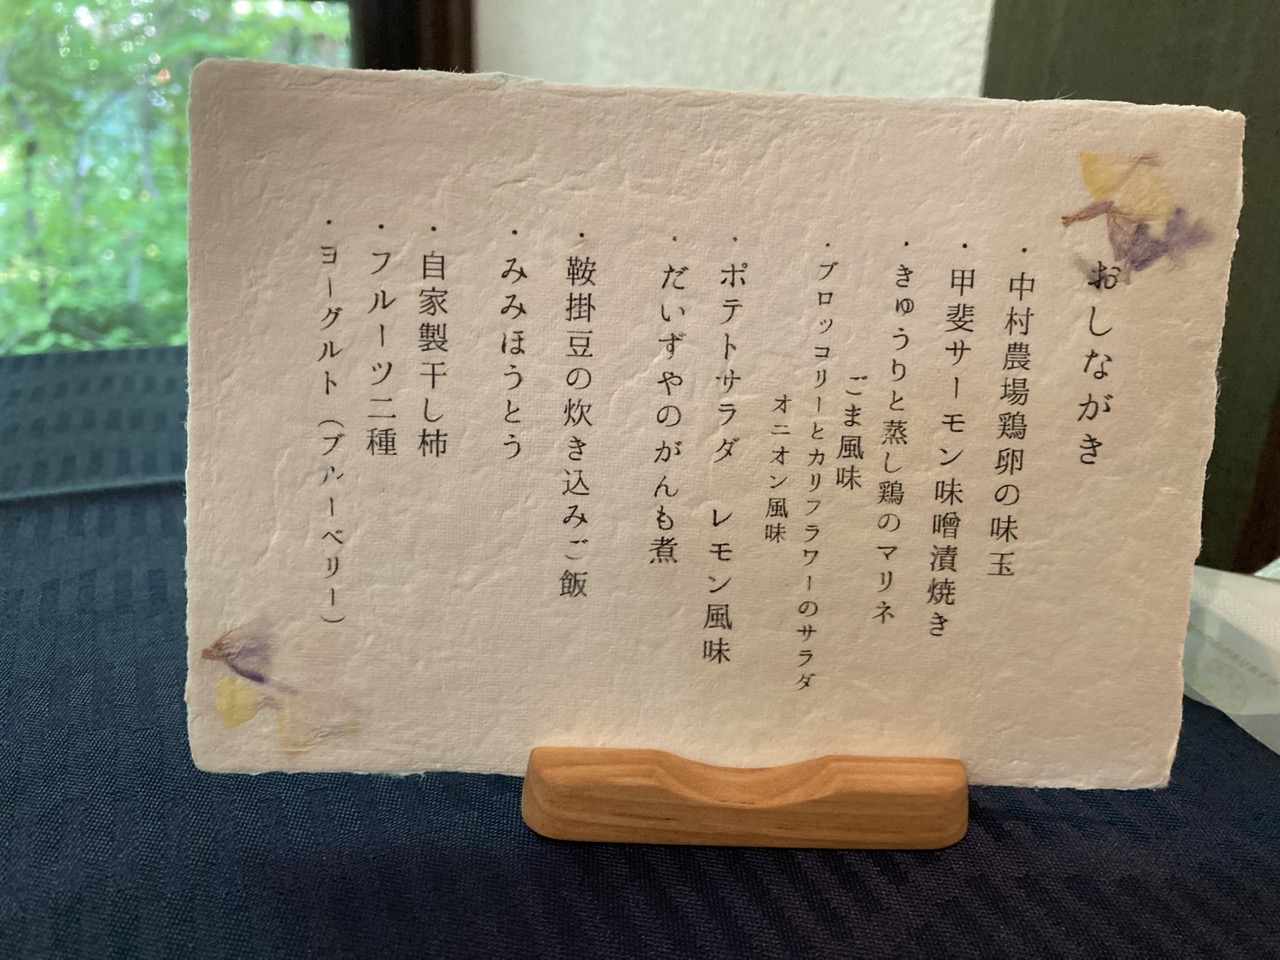 おしながき
・中村農場鶏卵の味玉
・甲斐サーモン味噌漬焼き
・きゅうりと蒸し鶏のマリネ
ごま風味
・ブロッコリーとカリフラワーのサラダ
オニオン風味
・ポテトサラダ レモン風味
・だいずやのがんも煮
・鞍掛豆の炊き込みご飯
・みみほうとう
・自家製干し柿
・フルーツ二種
・ヨーグルト（ブルーベリー）